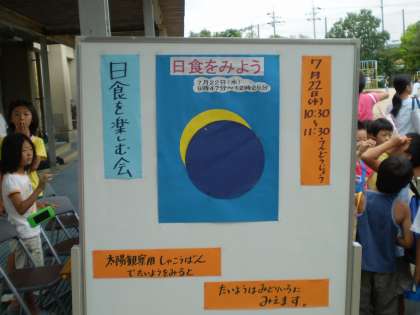 日食を楽しむ会
日食をみよう
7月22日(水)
9時47分～12時25分
7月22日(水)
10:30
～
11:30
うんどうじょう
太陽観察用しゃこうばん
でたいようをみると
たいようはみどりいろに
みえます。